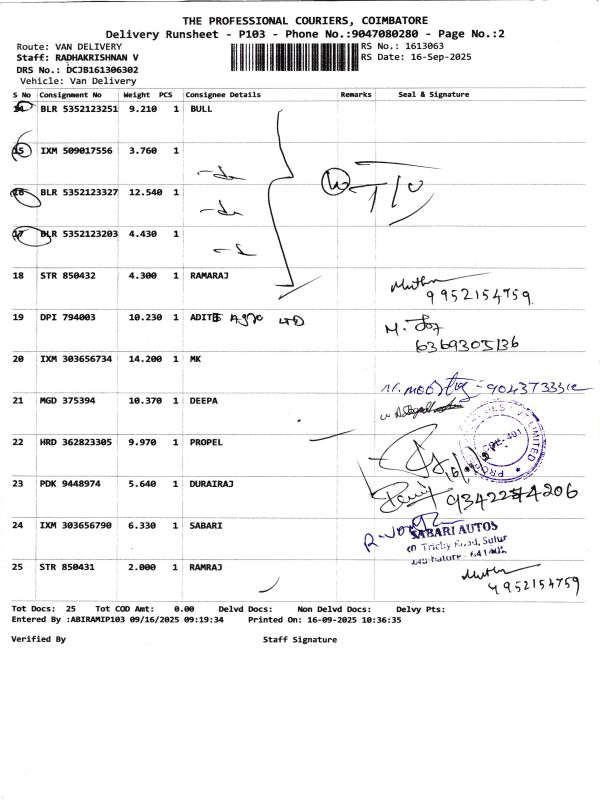 THE PROFESSIONAL COURIERS, COIMBATORE
Delivery Runsheet - P103 - Phone No.:9047080280 - Page No.:2
Route: VAN DELIVERY
RS No.: 1613063
Staff: RADHAKRISHNAN V
RS Date: 16-Sep-2025
DRS No.: DCJB161306302
Vehicle: Van Delivery
S No Consignment No Weight PCS Consignee Details Remarks Seal & Signature
14 BLR 5352123251 9.210 1 BULL
15 IXM 509017556 3.760 1
16 BLR 5352123327 12.540 1
17 BLR 5352123203 4.430 1
18 STR 850432 4.300 1 RAMARAJ
9952154759
19 DPI 794003 10.230 1 ADITE Agro LTD
6369305136
20 IXM 303656734 14.200 1 MK
21 MGD 375394 10.370 1 DEEPA
22 HRD 362823305 9.970 1 PROPEL
23 PDK 9448974 5.640 1 DURAIRAJ
24 IXM 303656790 6.330 1 SABARI
SABARI AUTOS
Trichy Road, Sulur
25 STR 850431 2.000 1 RAMRAJ
9952154759
Tot Docs: 25 Tot COD Amt: 0.00 Delvd Docs: Non Delvd Docs: Delvy Pts:
Entered By :ABIRAMIP103 09/16/2025 09:19:34 Printed On: 16-09-2025 10:36:35
Verified By Staff Signature